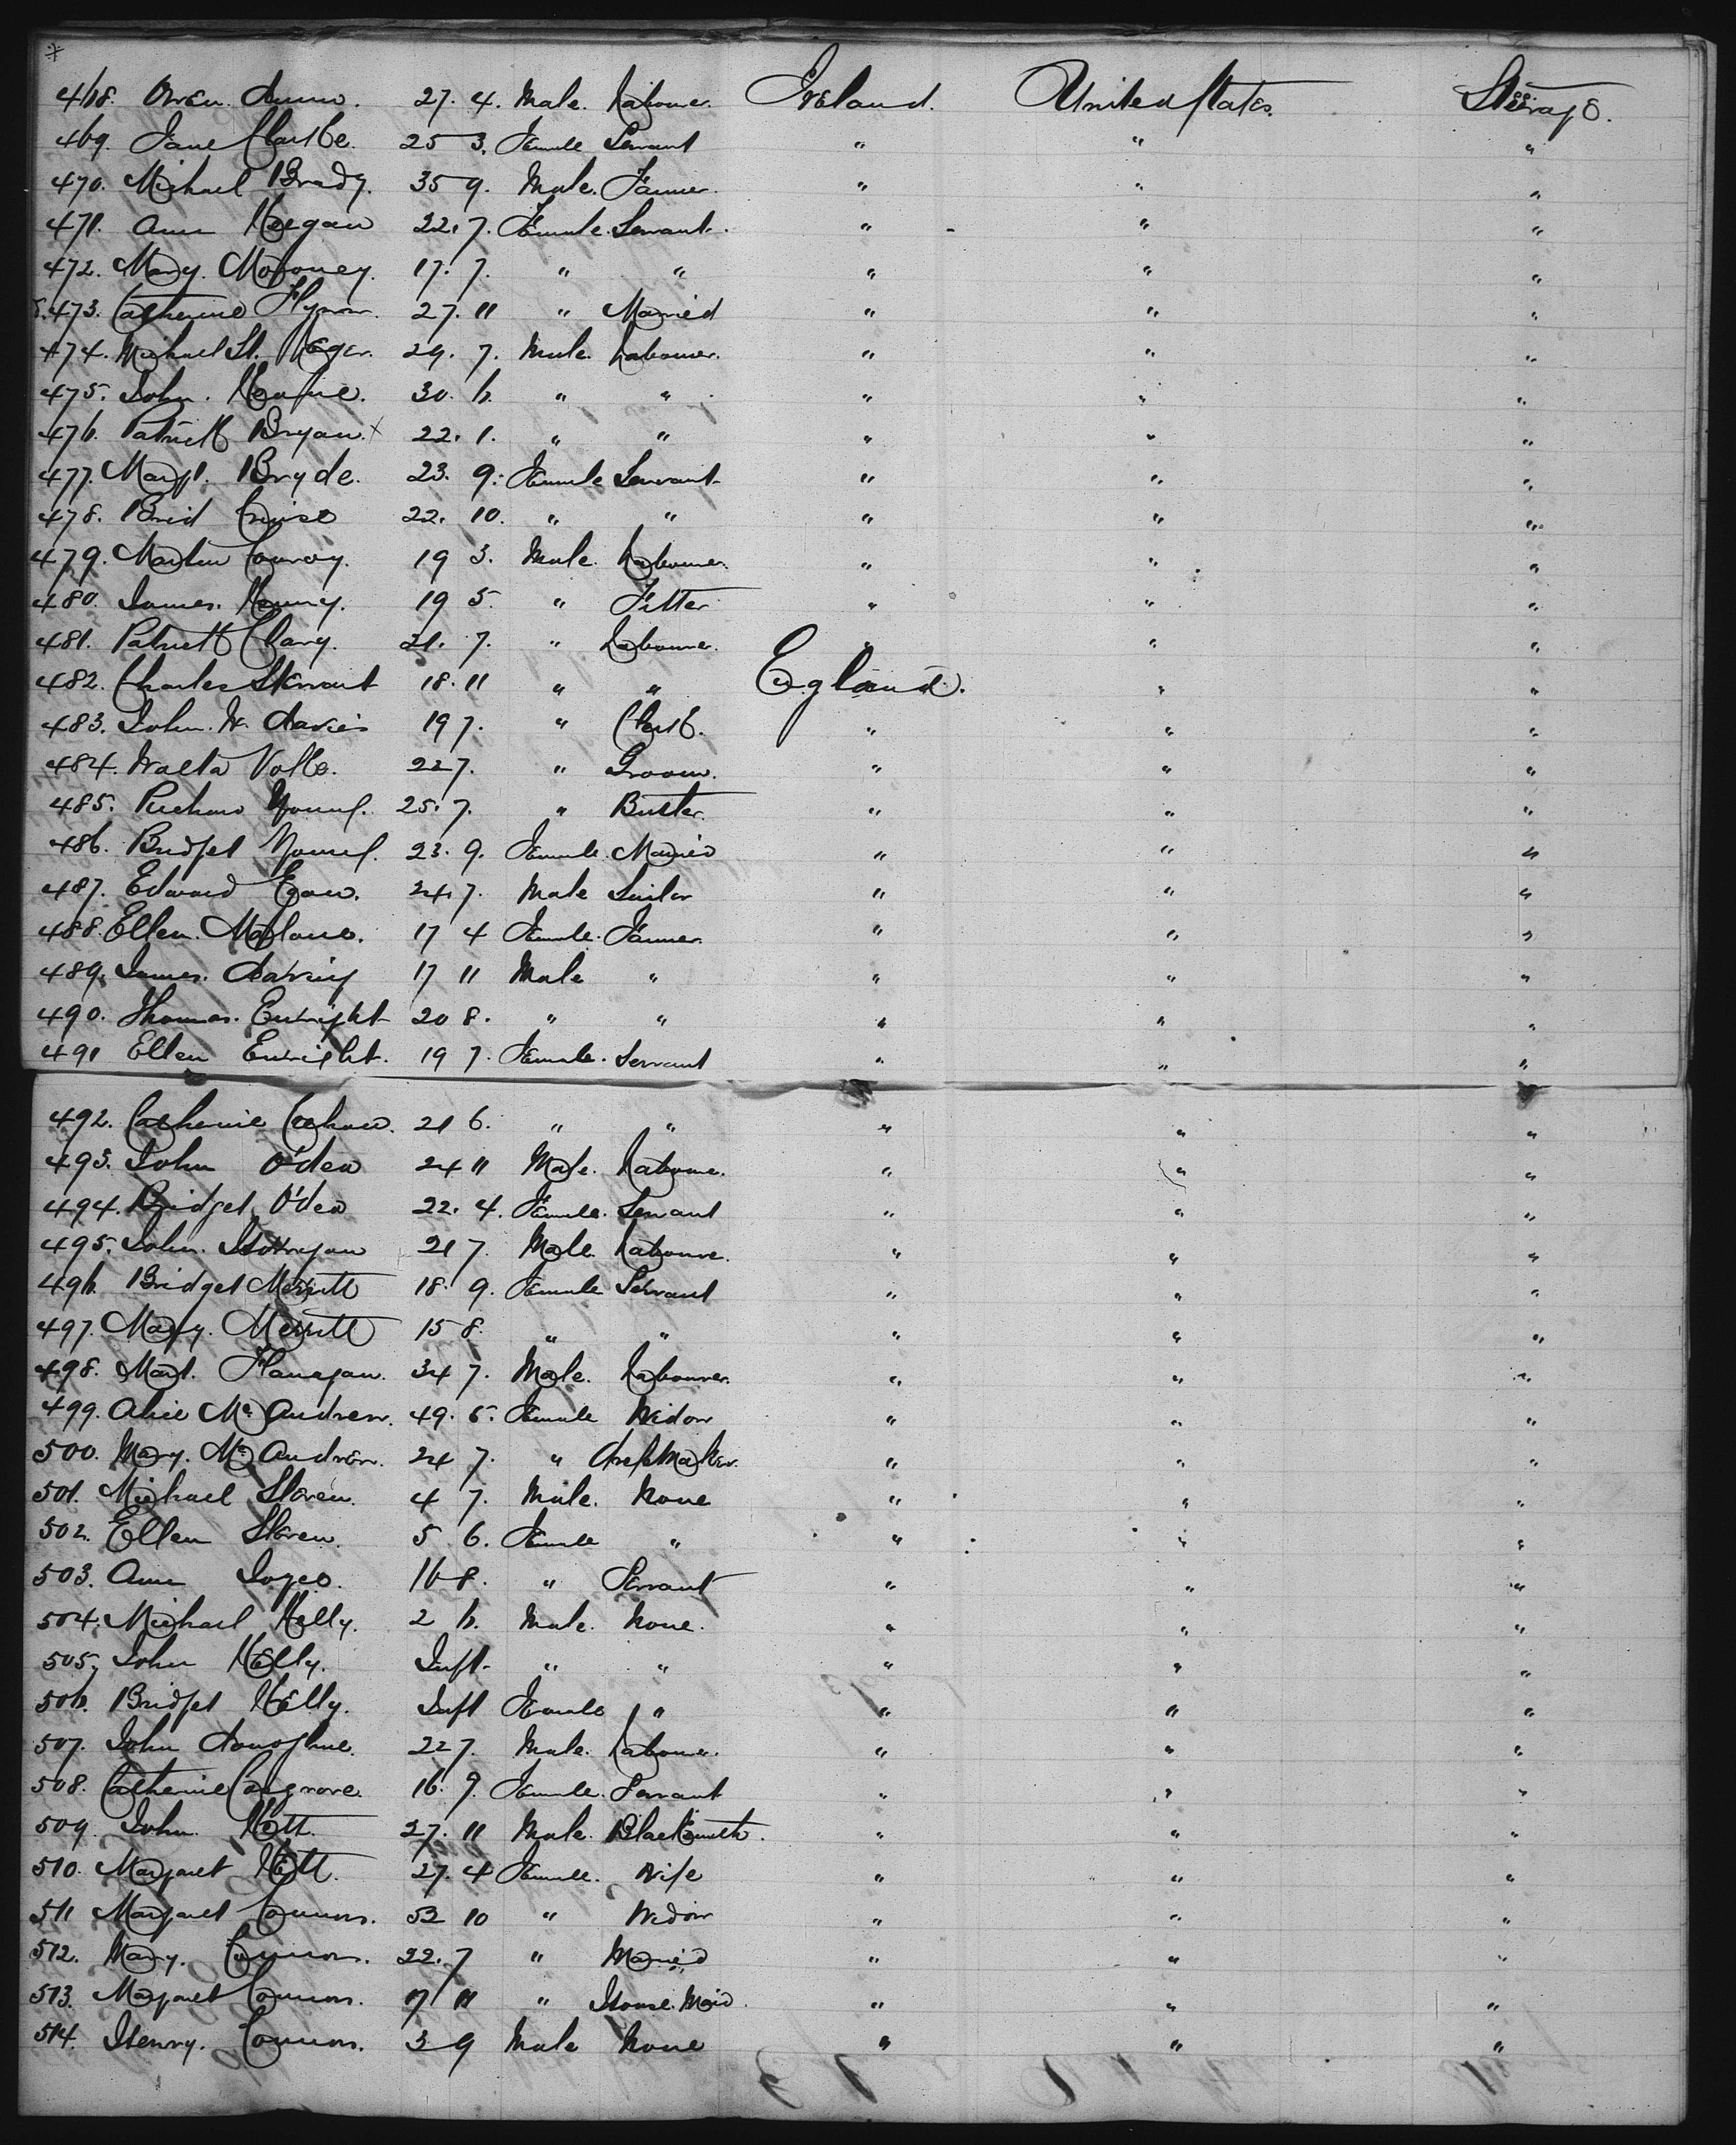 468. Owen Dunne. 27. 4. Male. Labourer. Ireland. United States. Steerage.
469. Jane Clarke. 25 3. Female Servant " " "
470. Michael Brady. 35 9. Male. Farmer. " " "
471. Ann Keegan 22. 7. Female. Servant. " " "
472. Mary. Moroney. 17. 7. " " " " "
473. Catherine Flynn. 27. 11 " Married " " "
474. Michael St. Leger. 29. 7. Male. Labourer. " " "
475. John. 30. 6. " " " " "
476. Patrick Bryan. x 22. 1. " " " " "
477. Margt. Bryde. 23. 9. Female Servant " " "
478. Brid Cruise 22. 10. " " " " "
479. Martin Conroy. 19 3. Male. Labourer. " " "
480. James. Kenny. 19 5. " Fitter " " "
481. Patrick Clary. 21. 7. " Labourer. " " "
482. Charles Stewart 18. 11 " " England. " "
483. John. W. Davies 19 7. " Clerk. " " "
484. Walta 22 7. " Groom. " " "
485. Young. 25. 7. " " " "
486. Bridget Young. 23. 9. Female. Married " " "
487. Edward Egan. 24. 7. Male Sailor " " "
488. Ellen. Malone. 17 4 Female. Farmer. " " "
489. James. 17 11 Male " " " "
490. Thomas. Enright 20 8. " " " " "
491 Ellen Enright. 19 7. Female. Servant " " "
492. Catherine 21 6. " " " " "
493. John O'dea 24 11 Male. Labourer. " " "
494. Bridget O'dea 22. 4. Female. Servant " " "
495. John. 21 7. Male. Labourer. " " "
496. Bridget Merritt 18. 9. Female Servant " " "
497. Mary. Merritt 15 8. " " " " "
498. Mart. Flanagan. 34 7. Male. Labourer. " " "
499. Alice McAndrew. 49. 5. Female Widow " " "
500. Mary. McAndrew. 24 7. " DressMaker. " " "
501. Michael 4 7. Male. None " " "
502. Ellen 5 6. Female " " " "
503. Ann Joyce. 16 8. " Servant " " "
504. Michael Kelly. 2 6. Male. None. " " "
505. John Kelly. Inft. " " " " "
506. Bridget Kelly. Inft Female " " " "
507. John Donoghue. 22 7. Male. Labourer. " " "
508. Catherine Cosgrove. 16. 9. Female. Servant " " "
509. John. Kett. 27. 11 Male. Blacksmith. " " "
510. Margaret Kett. 27. 4 Female. Wife " " "
511 Margaret Connors. 52 10 " Widow " " "
512. Mary. Connors. 22. 7 " Married " " "
513. Margaret Connors. 17 11 " House Maid. " " "
514. Henry. Connors. 3 9 Male None " " "